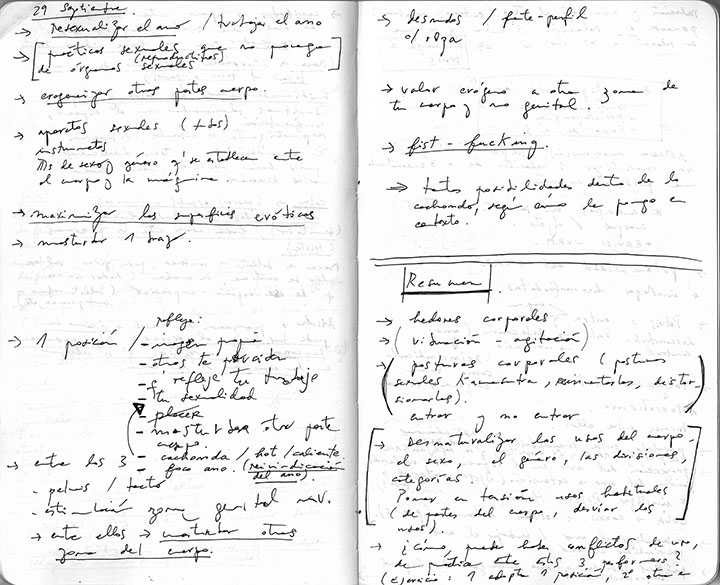 29 Septiembre.
→ resexualizar el ano / trabajar el ano
→ prácticas sexuales que no ponga
(reproductivos)
de órganos sexuales
→ erogenizar otras partes cuerpo.
→ aparatos sexuales
instrumentos
de sexo y género q' se establecen entre
el cuerpo y la máquina.
→ maximizar las superficies eróticas
→ masturbar 1 brazo.
refleje:
→ 1 posición / - imagen propia
- otros te
- q refleje tu trabajo
- tu sexualidad
- placer
- masturbarse otra parte
cuerpo.
- cachonda / hot / caliente
- foco ano. (reivindicación
del ano).
→ entre los 3
- pelvis / tacto
- estimulación zona genital
→ entre ellos → masturbar otras
zona del cuerpo.
→ desnudos / frente - perfil
c/ ropa
→ valor erógeno a otra zona de
tu cuerpo y no genital.
→ fist - fucking.
⇒ tantas posibilidades dentro de lo
cachondo, según cómo le pongo en
contexto.
Resumen
→ hedores corporales
→ (vibración - agitación)
→ posturas corporales (posturas
sexuales Kamasutra, reinventarlas, distor
sionarlas).
entrar y no entrar
→ Desnaturalizar los usos del cuerpo,
el sexo, el género, las divisiones,
categorías.
Poner en tensión usos habituales
(de partes del cuerpo, desviar los
usos).
→ ¿Cómo puede haber conflictos de uso,
de práctica entre los 3 performers?
(ejercicio: 1 adopta 1 posición, 2º